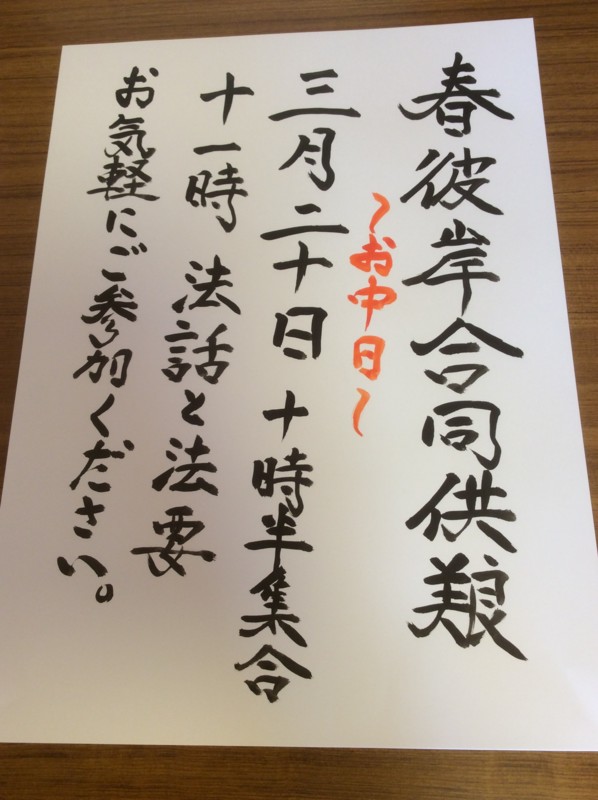 春彼岸合同供養
〜お中日〜
三月二十日 十時半集合
十一時 法話と法要
お気軽にご参加ください。